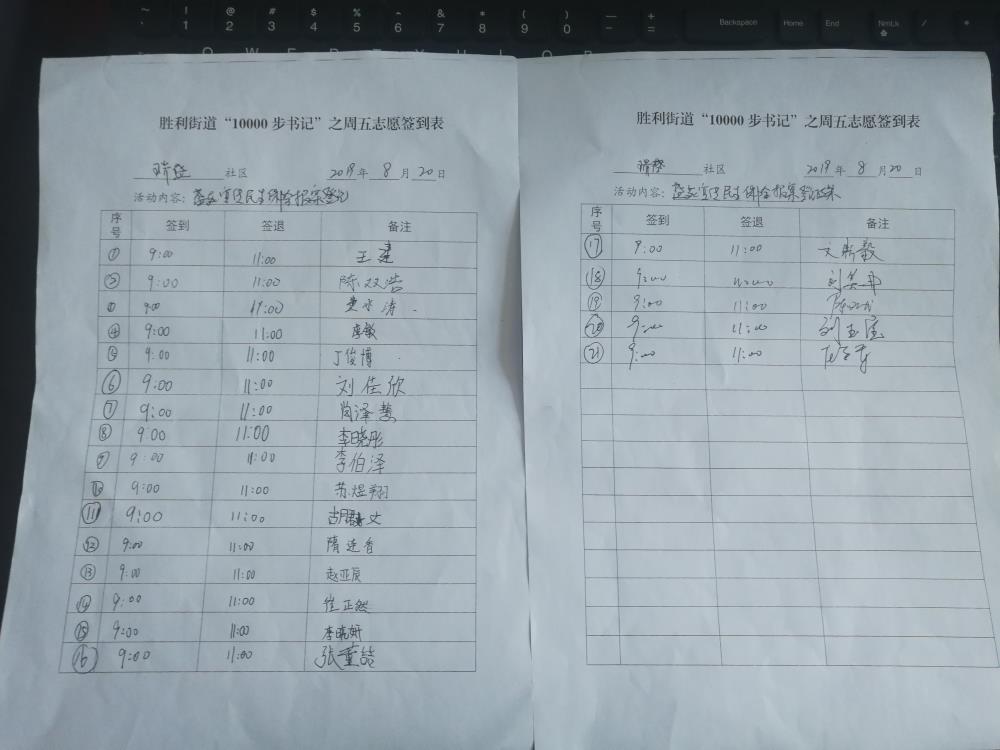 Backspace Home End NmLk
胜利街道“10000 步书记”之周五志愿签到表
社区 2019年 8 月 20 日
活动内容:
序号 签到 签退 备注
① 9:00 11:00 王建
② 9:00 11:00 陈双浩
③ 9:00 11:00
④ 9:00 11:00 李敏
⑤ 9:00 11:00 丁俊博
⑥ 9:00 11:00 刘佳欣
⑦ 9:00 11:00 尚泽慧
⑧ 9:00 11:00 李晓彤
⑨ 9:00 11:00 李伯泽
⑩ 9:00 11:00 苏煜翔
⑪ 9:00 11:00 胡
⑫ 9:00 11:00 隋连香
⑬ 9:00 11:00 赵亚辰
⑭ 9:00 11:00 崔正然
⑮ 9:00 11:00 李晓妍
⑯ 9:00 11:00 张董喆
胜利街道“10000 步书记”之周五志愿签到表
社区 2019年 8 月 20 日
活动内容:
序号 签到 签退 备注
⑰ 9:00 11:00 文
⑱ 9:00 11:00 刘
⑲ 9:00 11:00
⑳ 9:00 11:00 刘玉宝
㉑ 9:00 11:00